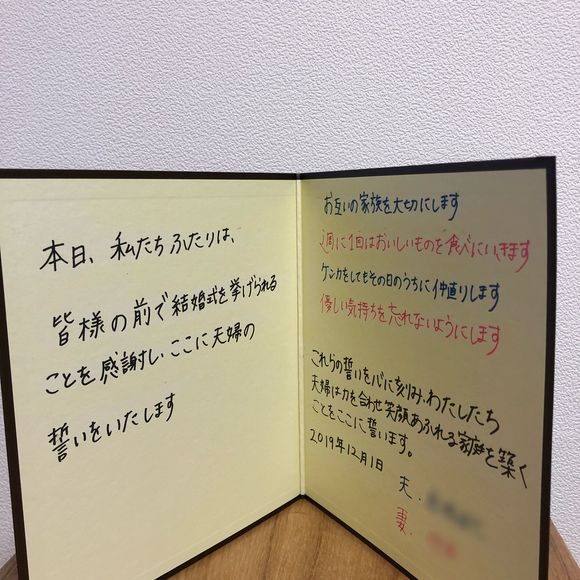 本日、私たちふたりは、
皆様の前で結婚式を挙げられる
ことを感謝しここに夫婦の
誓いをいたします
お互いの家族を大切にします
週に1回はおいしいものを食べにいきます
ケンカをしてもその日のうちに仲直りします
優しい気持ちを忘れないようにします
これらの誓いを心に刻み、わたしたち
夫婦は力を合わせ笑顔あふれる家庭を築く
ことをここに誓います。
2019年12月1日
夫.
妻.